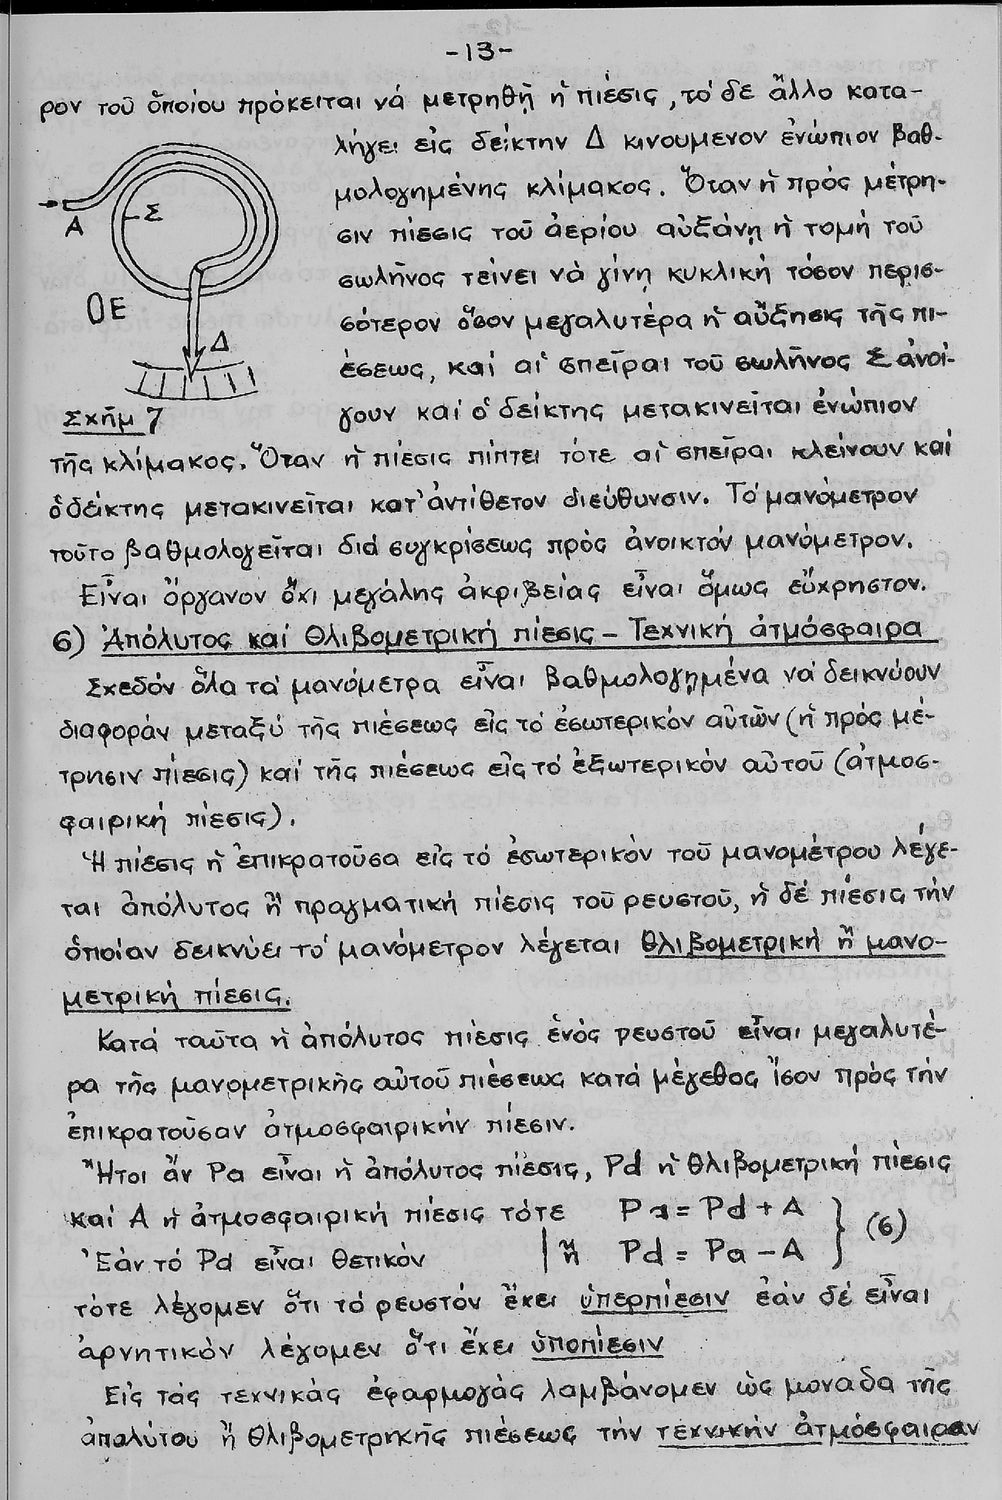 -13-
ρον τοῦ ὁποίου πρόκειται νά μετρηθῇ ἡ πίεσις, τό δε ἄλλο κατα-
λήγει εἰς δείκτην Δ κινουμενον ἐνώπιον βαθ-
μολογημένης κλίμακος. Ὅταν ἡ πρός μέτρη-
σιν πίεσις τοῦ ἀερίου αὐξάνῃ ἡ τομή τοῦ
σωλῆνος τείνει νά γίνῃ κυκλική τόσον περισ-
σότερον ὅσον μεγαλυτέρα ἡ αὔξησις τῆς πι-
έσεως, καί αἱ σπεῖραι τοῦ σωλῆνος Σ ἀνοί-
γουν καί ὁ δείκτης μετακινεῖται ἐνώπιον
Α
Σ
Ε
Δ
Σχῆμ 7
τῆς κλίμακος. Ὅταν ἡ πίεσις πίπτει τότε αἱ σπεῖραι κλείνουν καί
ὁ δείκτης μετακινεῖται κατ' ἀντίθετον διεύθυνσιν. Τό μανόμετρον
τοῦτο βαθμολογεῖται διά συγκρίσεως πρός ἀνοικτόν μανόμετρον.
Εἶναι ὄργανον ὄχι μεγάλης ἀκριβείας εἶναι ὅμως εὔχρηστον.
6) Ἀπόλυτος καί Θλιβομετρική πίεσις - Τεχνική ἀτμόσφαιρα
Σχεδόν ὅλα τά μανόμετρα εἶναι βαθμολογημένα νά δεικνύουν
διαφοράν μεταξύ τῆς πιέσεως εἰς τό ἐσωτερικόν αὐτῶν (ἡ πρός μέ-
τρησιν πίεσις) καί τῆς πιέσεως εἰς τό ἐξωτερικόν αὐτοῦ (ἀτμοσ-
φαιρική πίεσις).
Ἡ πίεσις ἡ ἐπικρατοῦσα εἰς τό ἐσωτερικόν τοῦ μανομέτρου λέγε-
ται ἀπόλυτος ἤ πραγματική πίεσις τοῦ ρευστοῦ, ἡ δέ πίεσις τήν
ὁποίαν δεικνύει τό μανόμετρον λέγεται θλιβομετρική ἤ μανο-
μετρική πίεσις.
Κατά ταῦτα ἡ ἀπόλυτος πίεσις ἑνός ρευστοῦ εἶναι μεγαλυτέ-
ρα τῆς μανομετρικῆς αὐτοῦ πιέσεως κατά μέγεθος ἴσον πρός τήν
ἐπικρατοῦσαν ἀτμοσφαιρικήν πίεσιν.
Ἤτοι ἄν Pa εἶναι ἡ ἀπόλυτος πίεσις, Pd ἡ θλιβομετρική πίεσις
καί A ἡ ἀτμοσφαιρική πίεσις τότε Pa = Pd + A
Ἐάν τό Pd εἶναι θετικόν | ἤ Pd = Pa - A } (6)
τότε λέγομεν ὅτι τό ρευστόν ἔχει ὑπερπίεσιν ἐάν δέ εἶναι
ἀρνητικόν λέγομεν ὅτι ἔχει ὑποπίεσιν
Εἰς τάς τεχνικάς ἐφαρμογάς λαμβάνομεν ὡς μονάδα τῆς
ἀπολύτου ἤ θλιβομετρικῆς πιέσεως τήν τεχνικήν ἀτμόσφαιραν